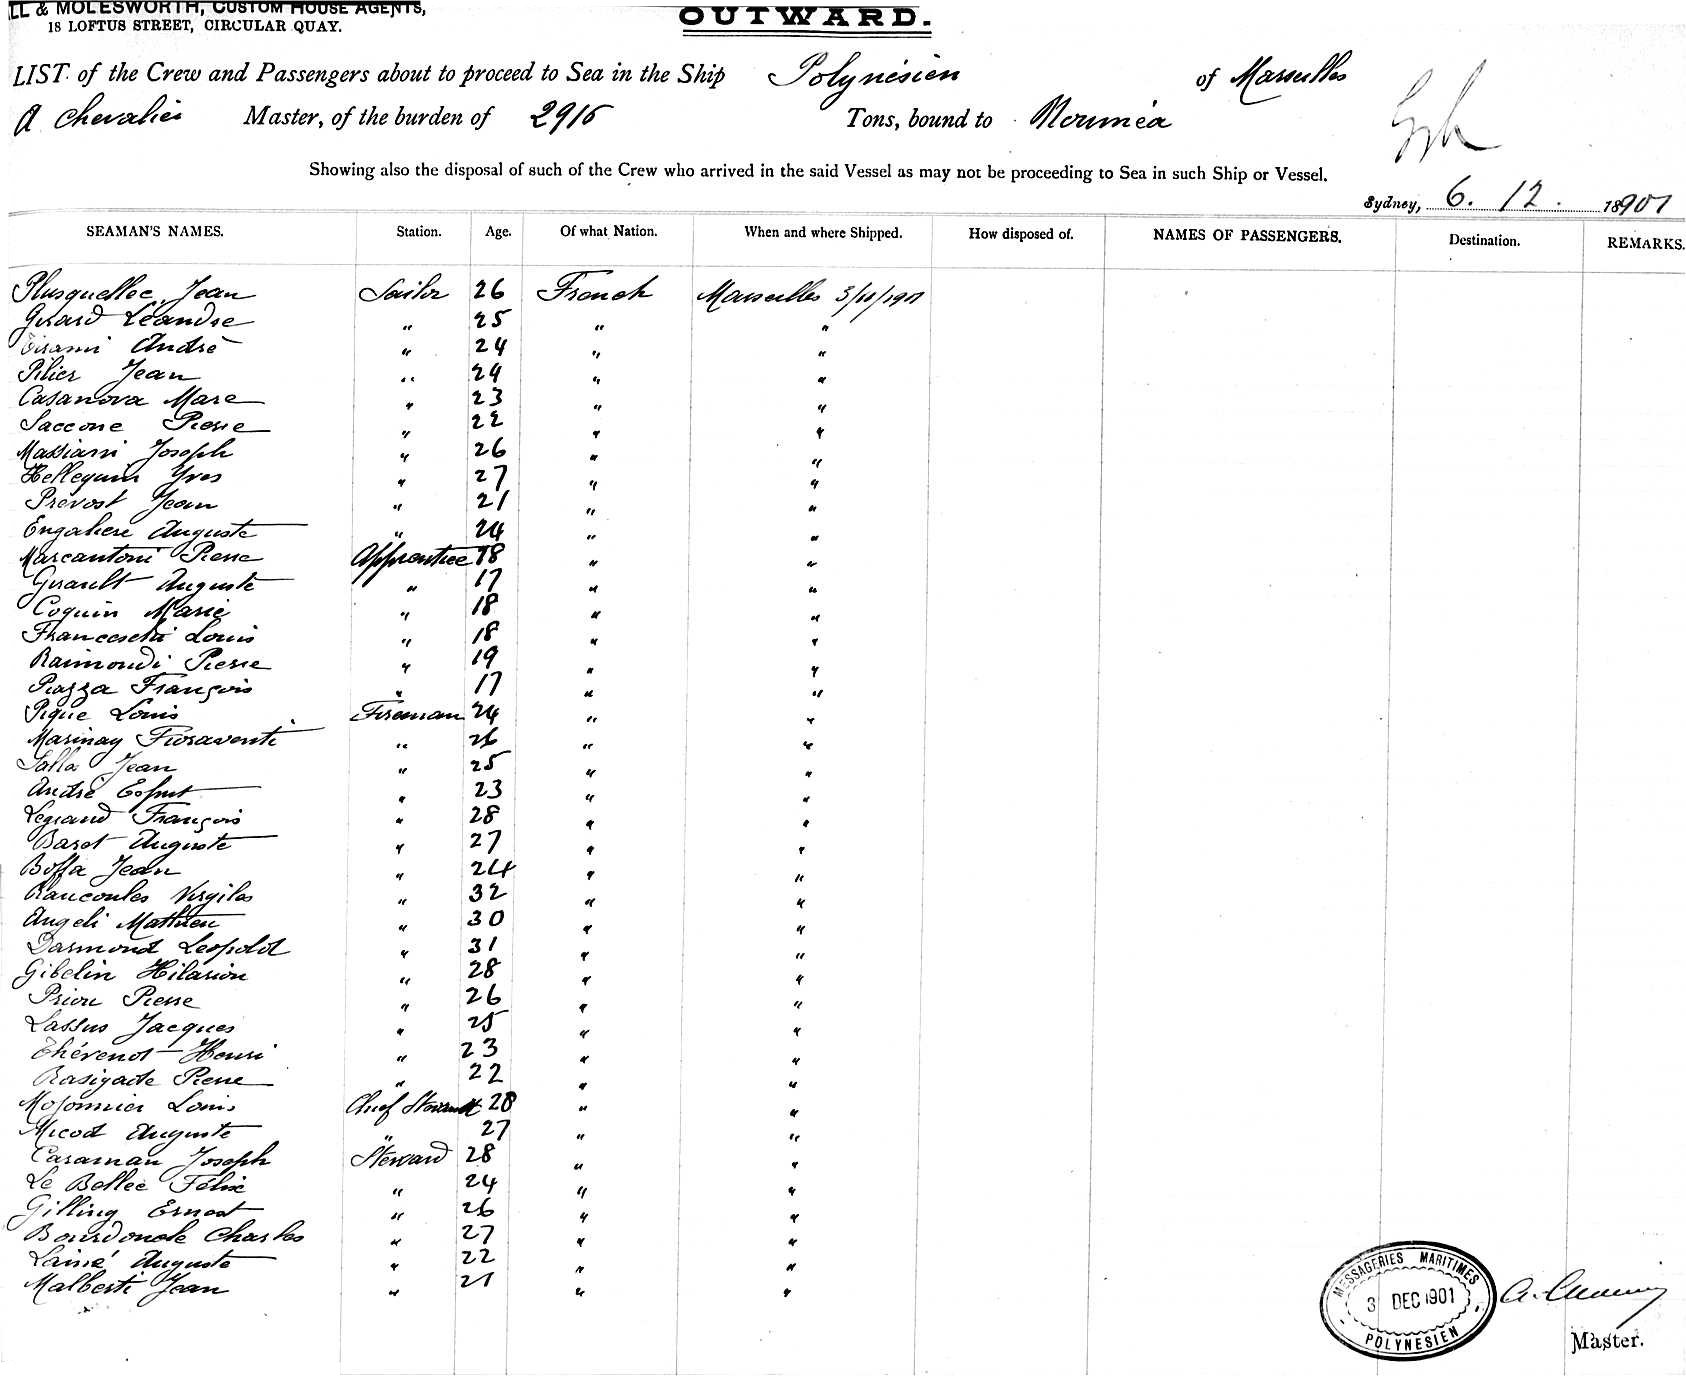 LL & MOLESWORTH, CUSTOM HOUSE AGENTS,
18 LOFTUS STREET, CIRCULAR QUAY.
OUTWARD.
LIST of the Crew and Passengers about to proceed to Sea in the Ship Polynésien of Marseilles
A Chevalier Master, of the burden of 2916 Tons, bound to Nouméa
Showing also the disposal of such of the Crew who arrived in the said Vessel as may not be proceeding to Sea in such Ship or Vessel.
Sydney, 6. 12. 18901
SEAMAN'S NAMES. Station. Age. Of what Nation. When and where Shipped. How disposed of. NAMES OF PASSENGERS. Destination. REMARKS.
Plusquellec, Jean Sailor 26 French Marseilles 3/11/1901
Girard Léandre " 25 " "
André " 24 " "
Pilier Jean " 24 " "
Casanova Marc " 23 " "
Saccone Pierre " 22 " "
Massiani Joseph " 26 " "
Hellequin Yves " 27 " "
Prévost Jean " 21 " "
Auguste " 24 " "
Marcantoni Pierre Apprentice 18 " "
Girault Auguste " 17 " "
Coquin Marie " 18 " "
Franceschi Louis " 18 " "
Raimondi Pierre " 19 " "
Piazza François " 17 " "
Pique Louis Fireman 24 " "
Marinay Fioraventi " 26 " "
Salla Jean " 25 " "
André " 23 " "
Legrand François " 28 " "
Barot Auguste " 27 " "
Boffa Jean " 24 " "
Rancoules Virgiles " 32 " "
Angeli Mathieu " 30 " "
Darmond Leopold " 31 " "
Gibelin Hilarion " 28 " "
Priou Pierre " 26 " "
Lassus Jacques " 25 " "
Thévenot Henri " 23 " "
Rasigade Pierre " 22 " "
Louis Chief Steward 28 " "
Micod Auguste " 27 " "
Caraman Joseph Steward 28 " "
Le Bellec Félix " 24 " "
Gilling Ernest " 26 " "
Bourdoncle Charles " 27 " "
Lainé Auguste " 22 " "
Malberti Jean " 21 " "
MESSAGERIES MARITIMES
3 DEC 1901
POLYNESIEN
Master.